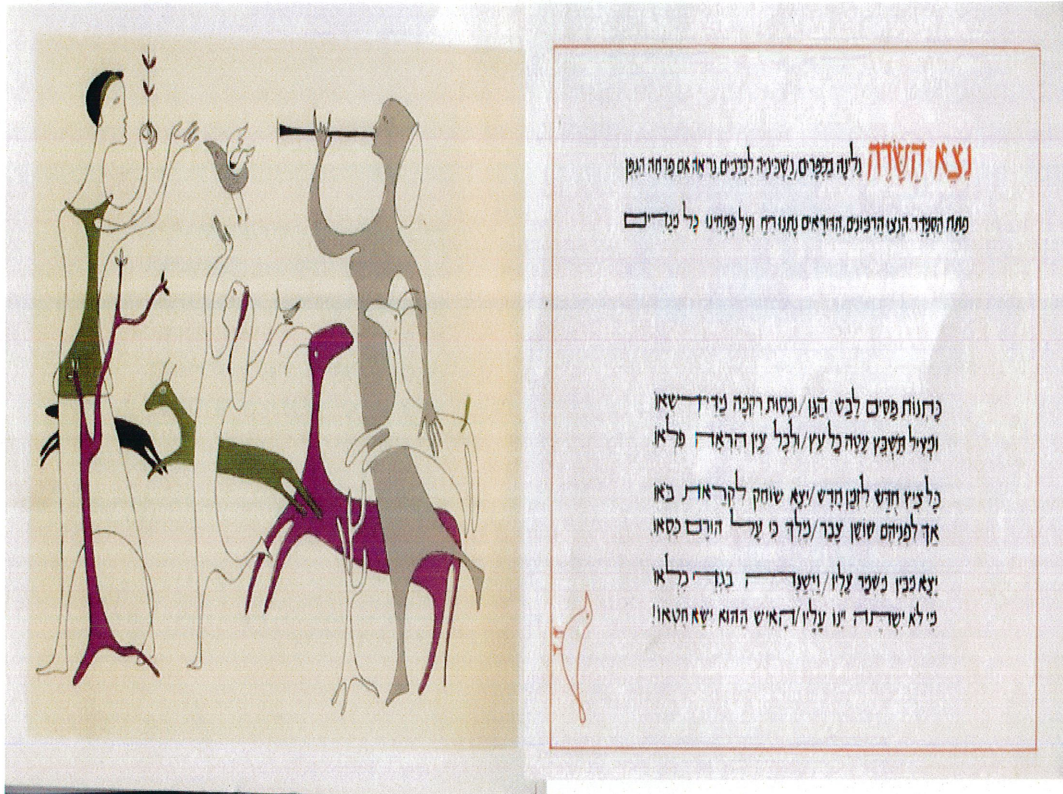 נֵצֵא הַשָּׂדֶה נָלִינָה בַּכְּפָרִים, נַשְׁכִּימָה לַכְּרָמִים, נִרְאֶה אִם פָּרְחָה הַגֶּפֶן
פִּתַּח הַסְּמָדַר הֵנֵצוּ הָרִמּוֹנִים, הַדּוּדָאִים נָתְנוּ רֵיחַ וְעַל פְּתָחֵינוּ כָּל מְגָדִים
כָּתְנוֹת פַּסִּים לָבַשׁ הַגַּן/וּכְסוּת רִקְמָה מַדֵּי דִשְׁאוֹ
וּמְעִיל תַּשְׁבֵּץ עָטָה כָל עֵץ/וּלְכָל עַיִן הֶרְאָה פִלְאוֹ
כָּל צִיץ חָדָשׁ לִזְמַן חֻדַּשׁ/יָצָא שׂוֹחֵק לִקְרַאת בֹּאוֹ
אַךְ לִפְנֵיהֶם שׁוֹשָׁן עָבַר/מֶלֶךְ כִּי עַל הוּרַם כִּסְאוֹ
יָצָא מִבֵּין מִשְׁמַר עָלָיו/וַיְשַׁנֶּה בִּגְדֵי כִלְאוֹ
מִי לֹא יִשְׁתֶּה יֵינוֹ עָלָיו/הָאִישׁ הַהוּא יִשָּׂא חֶטְאוֹ!